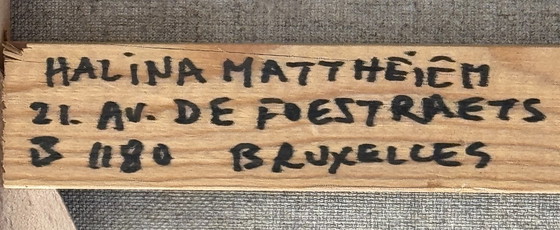 HALINA MATTHEIEM
21. AV. DE FOESTRAETS
B 1180 BRUXELLES